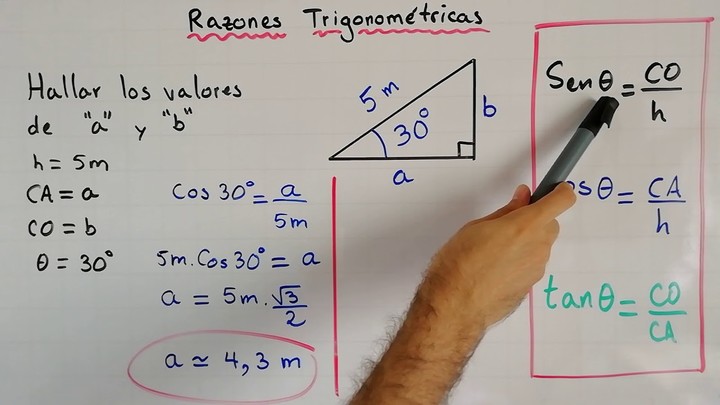 Razones Trigonométricas
Hallar los valores
de "a" y "b"
h = 5m
CA = a
CO = b
θ = 30°
Cos 30° = a/5m
5m.Cos 30° = a
a = 5m.√3/2
a ≃ 4,3 m
5 m
30°
b
a
Sen θ = CO/h
θ = CA/h
tan θ = CO/CA